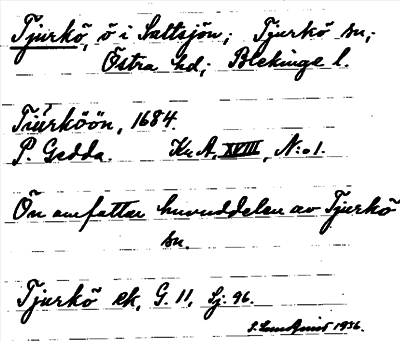 Tjurkö, ö i Saltsjön; Tjurkö sn;
Östra hd; Blekinge l.
Tiurköön, 1684.
P. Gedda. Kr A, XVIII, N:o 1.
Ön omfattar huvuddelen av Tjurkö
sn.
Tjurkö ek, G. 11, Sj: 96.
S. Lundqvist 1936.